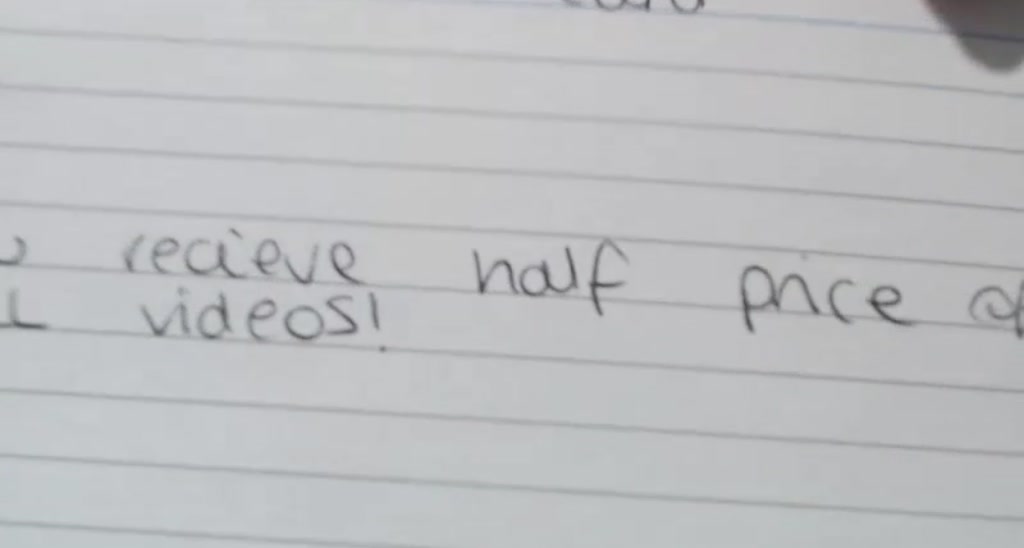 recieve half price
videos!